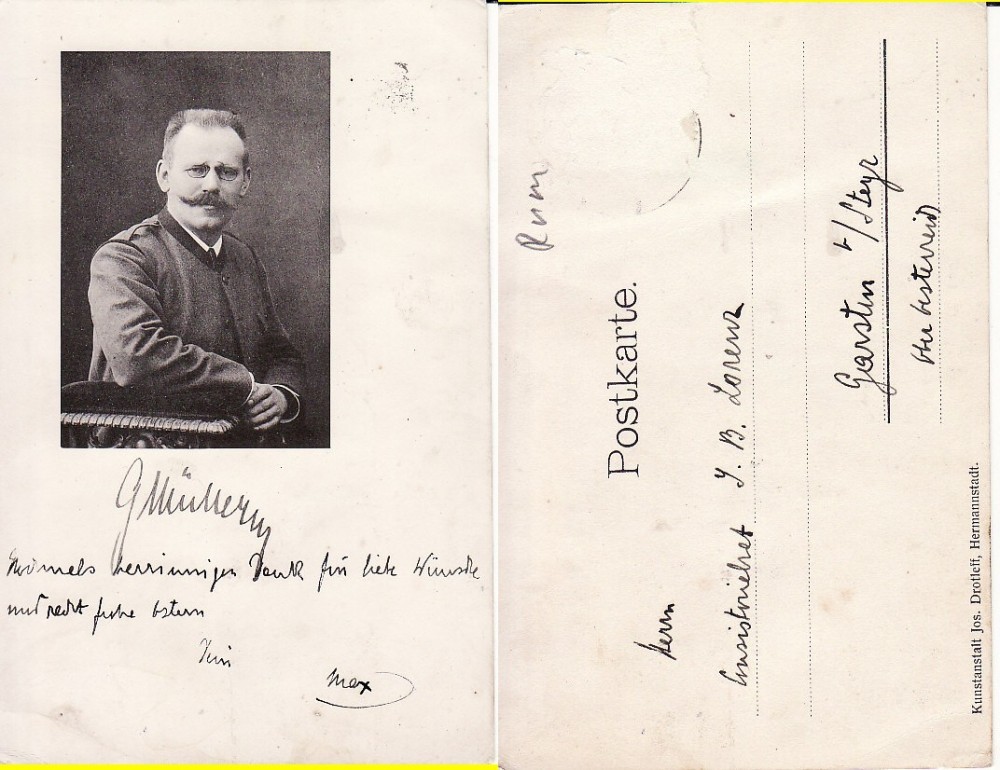 GMüllern
Nochmals herzinnigen Dank für liebe Wünsche
und recht frohe Ostern
Dein
Max
Rum
Postkarte.
Herrn
J. B. Lorenz
Garsten b/Steyr
Ober Oesterreich
Kunstanstalt Jos. Drotleff, Hermannstadt.